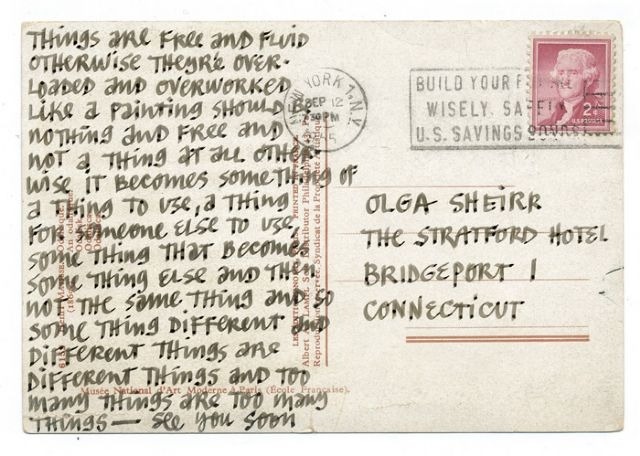 THINGS ARE FREE AND FLUID
OTHERWISE THEY'RE OVER-
LOADED AND OVERWORKED
LIKE A PAINTING SHOULD BE
NOTHING AND FREE AND
NOT A THING AT ALL OTHER-
WISE IT BECOMES SOMETHING OF
A THING TO USE, A THING
FOR SOMEONE ELSE TO USE,
SOME THING THAT BECOMES
SOME THING ELSE AND THEN
NOT THE SAME THING AND SO
SOME THING DIFFERENT AND
DIFFERENT THINGS ARE
DIFFERENT THINGS AND TOO
MANY THINGS ARE TOO MANY
THINGS — SEE YOU SOON
Musée National d'Art Moderne à Paris (École Française).
NEW YORK, N.Y.
SEP 12
PM
BUILD YOUR
WISELY,
U.S. SAVINGS BONDS
2¢
U.S. POSTAGE
OLGA SHEIRR
THE STRATFORD HOTEL
BRIDGEPORT 1
CONNECTICUT